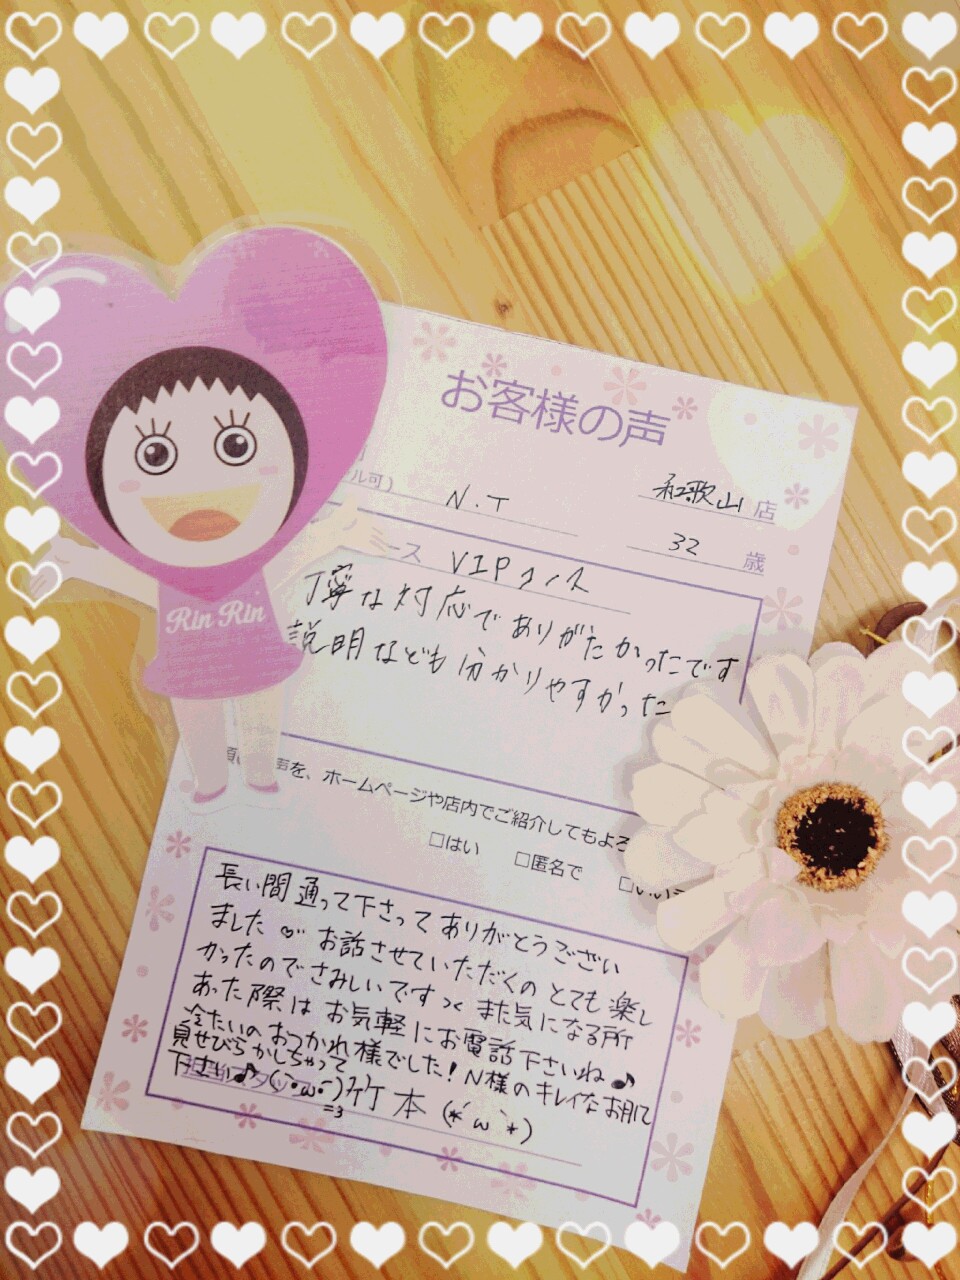 お客様の声
ル可)
N.T
和歌山 店
32 歳
ース VIPコース
丁寧な対応でありがたかったです
説明なども分かりやすかった
声を、ホームページや店内でご紹介してもよろ
□はい □匿名で
Rin Rin
長い間通って下さってありがとうござい
ました お話させていただくのとても楽し
かったのでさみしいです また気になる所
あった際はお気軽にお電話下さいね♪
冷たいのおつかれ様でした!N様のキレイなお肌
見せびらかしちゃって
下さい♪ 竹本 (*´ω`*)